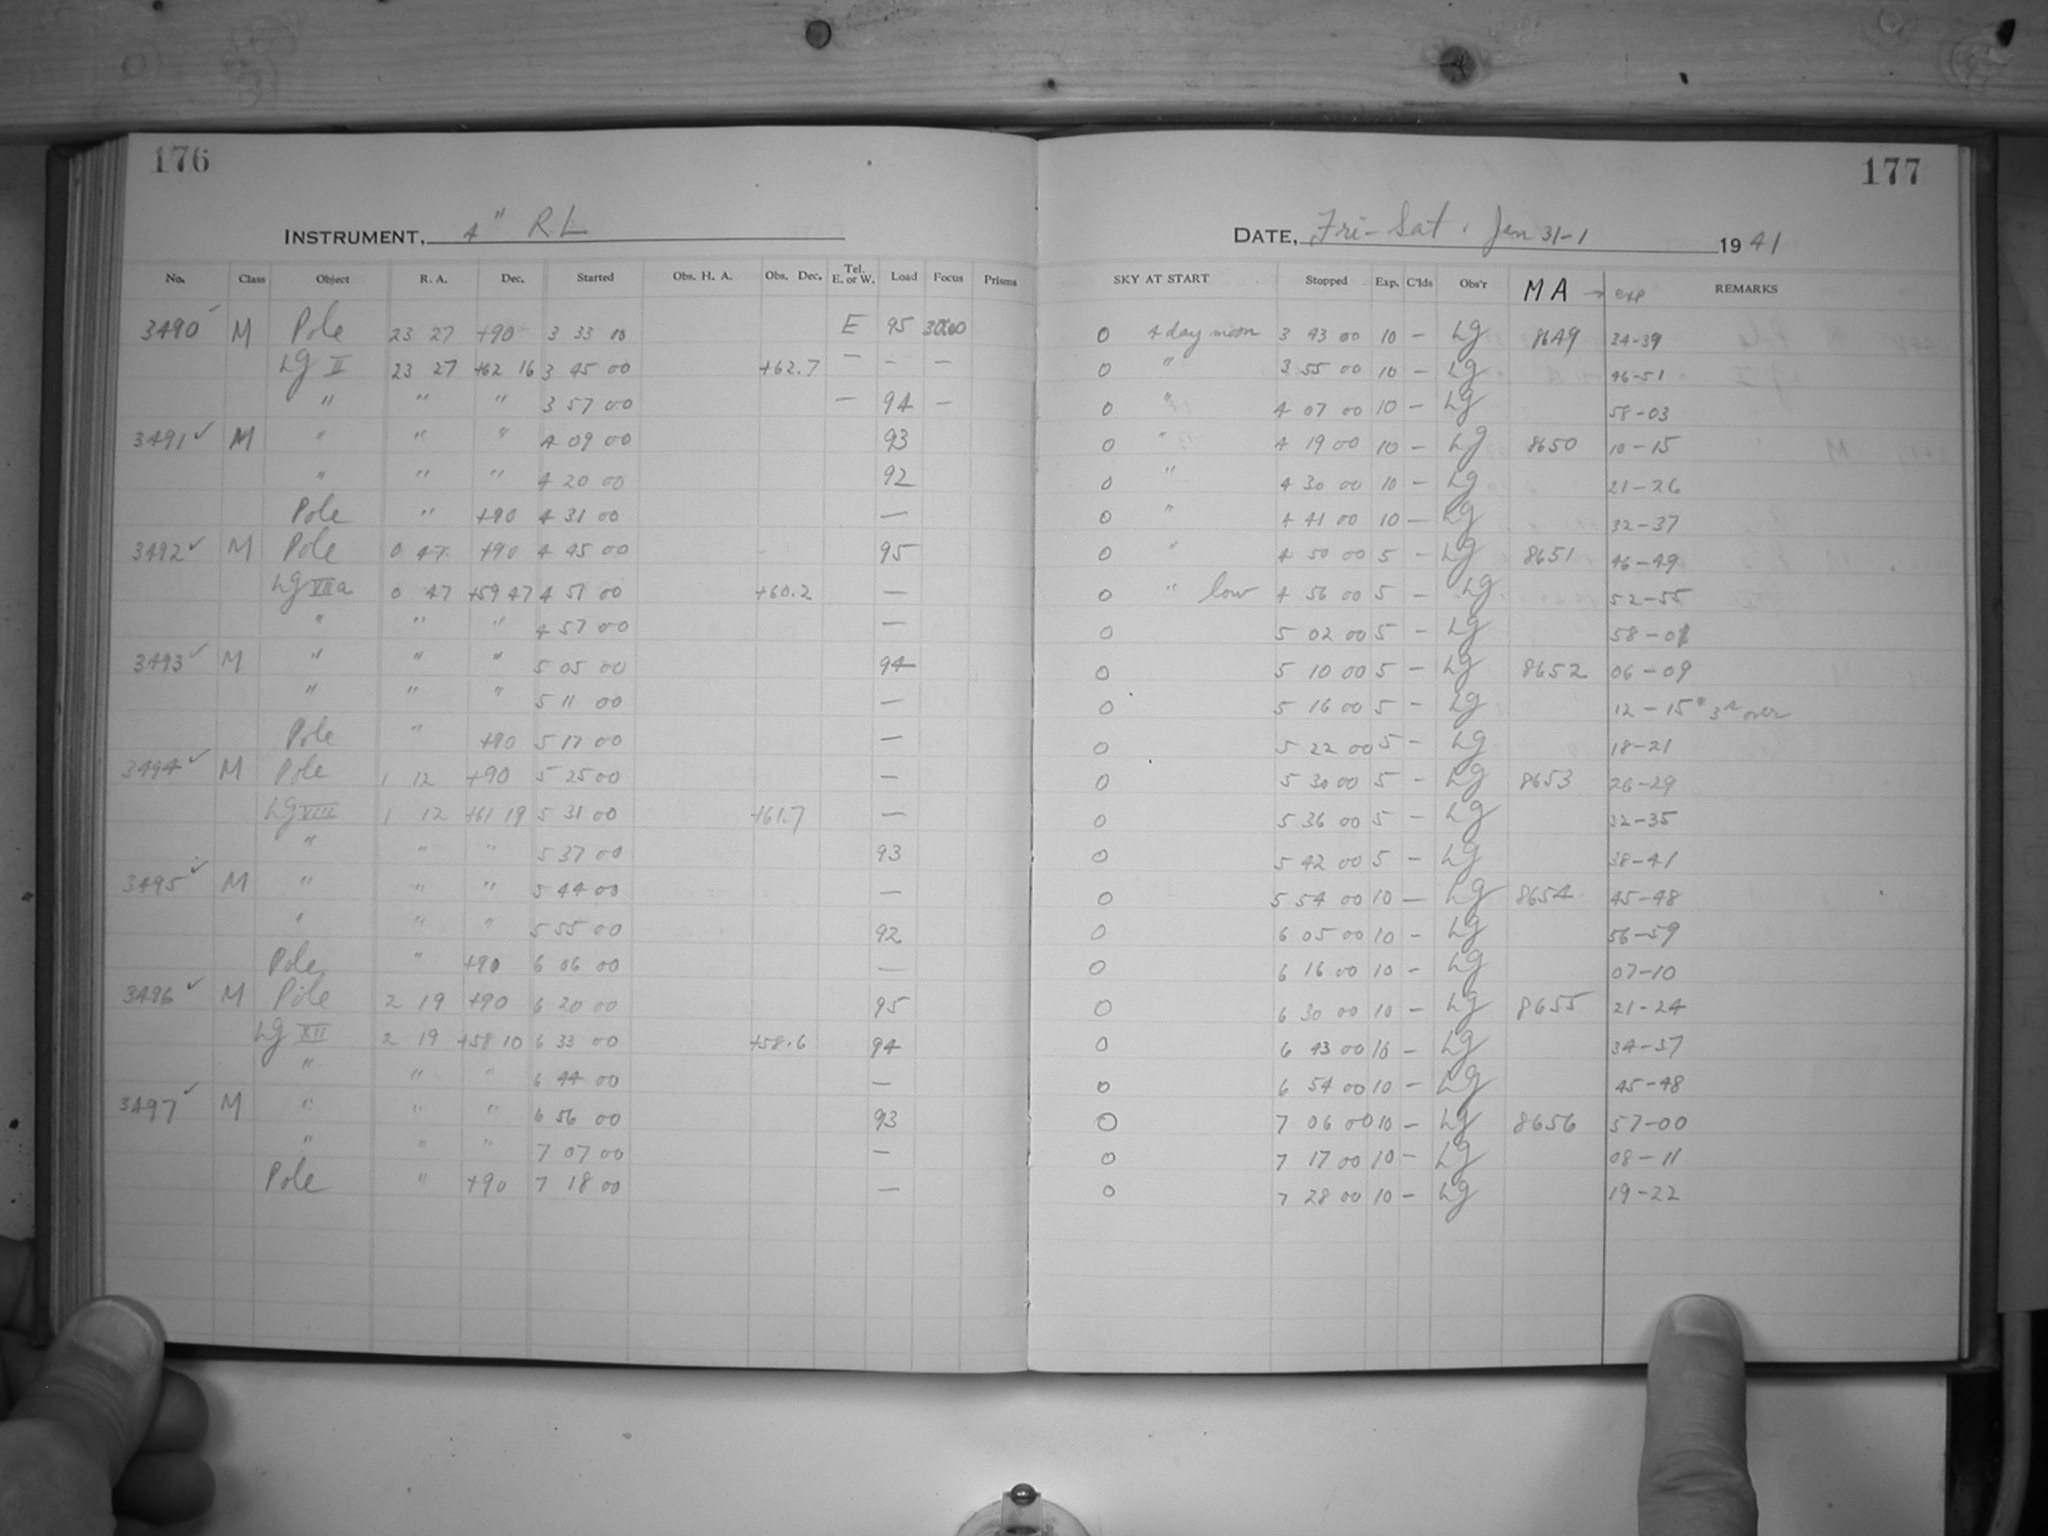 176
177
INSTRUMENT, 4" RL
DATE, Fri-Sat. Jan 31-1 1941
No. Class Object R. A. Dec. Started Obs. H. A. Obs. Dec. Tel. E. or W. Load Focus Prisms SKY AT START Stopped Exp. C'lds Obs'r MA → exp REMARKS
3490 ✓ M Pole 23 27 +90 3 33 00 E 95 O 4 day moon 3 43 00 10 — Lg 8649 34-39
Lg II 23 27 +62 16 3 45 00 +62.7 — — — O " 3 55 00 10 — Lg 46-51
" " " 3 57 00 — 94 — O " 4 07 00 10 — Lg 58-03
3491 ✓ M " " " 4 09 00 93 O " 4 19 00 10 — Lg 8650 10-15
" " " 4 20 00 92 O " 4 30 00 10 — Lg 21-26
Pole " +90 4 31 00 — O " 4 41 00 10 — Lg 32-37
3492 ✓ M Pole 0 47 +90 4 45 00 95 O " 4 50 00 5 — Lg 8651 46-49
Lg VIIa 0 47 +59 47 4 51 00 +60.2 — O " low 4 56 00 5 — Lg 52-55
" " " 4 57 00 — O 5 02 00 5 — Lg 58-01
3493 ✓ M " " " 5 05 00 94 O 5 10 00 5 — Lg 8652 06-09
" " " 5 11 00 — O 5 16 00 5 — Lg 12-15 * over
Pole " +90 5 17 00 — O 5 22 00 5 — Lg 18-21
3494 ✓ M Pole 1 12 +90 5 25 00 — O 5 30 00 5 — Lg 8653 26-29
Lg VIII 1 12 +61 19 5 31 00 +61.7 — O 5 36 00 5 — Lg 32-35
" " " 5 37 00 93 O 5 42 00 5 — Lg 38-41
3495 ✓ M " " " 5 44 00 — O 5 54 00 10 — Lg 8654 45-48
" " " 5 55 00 92 O 6 05 00 10 — Lg 56-59
Pole " +90 6 06 00 — O 6 16 00 10 — Lg 07-10
3496 ✓ M Pole 2 19 +90 6 20 00 95 O 6 30 00 10 — Lg 8655 21-24
Lg XII 2 19 +58 10 6 33 00 +58.6 94 O 6 43 00 10 — Lg 34-37
" " " 6 44 00 — O 6 54 00 10 — Lg 45-48
3497 ✓ M " " " 6 56 00 93 O 7 06 00 10 — Lg 8656 57-00
" " " 7 07 00 — O 7 17 00 10 — Lg 08-11
Pole " +90 7 18 00 — O 7 28 00 10 — Lg 19-22